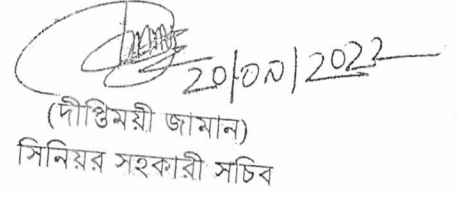 20/০৯/2022
(দীপ্তিময়ী জামান)
সিনিয়র সহকারী সচিব